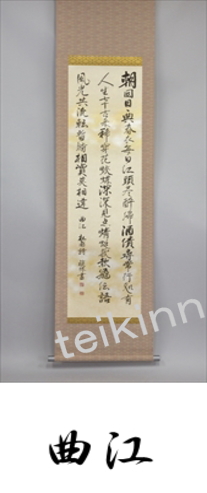 朝回日々典春衣毎日江頭尽酔帰酒債尋常行処有
人生七十古来稀穿花蛺蝶深深見点水蜻蜓款款飛伝語
風光共流転暫時相賞莫相違 曲江 杜甫詩
teikinn
曲江